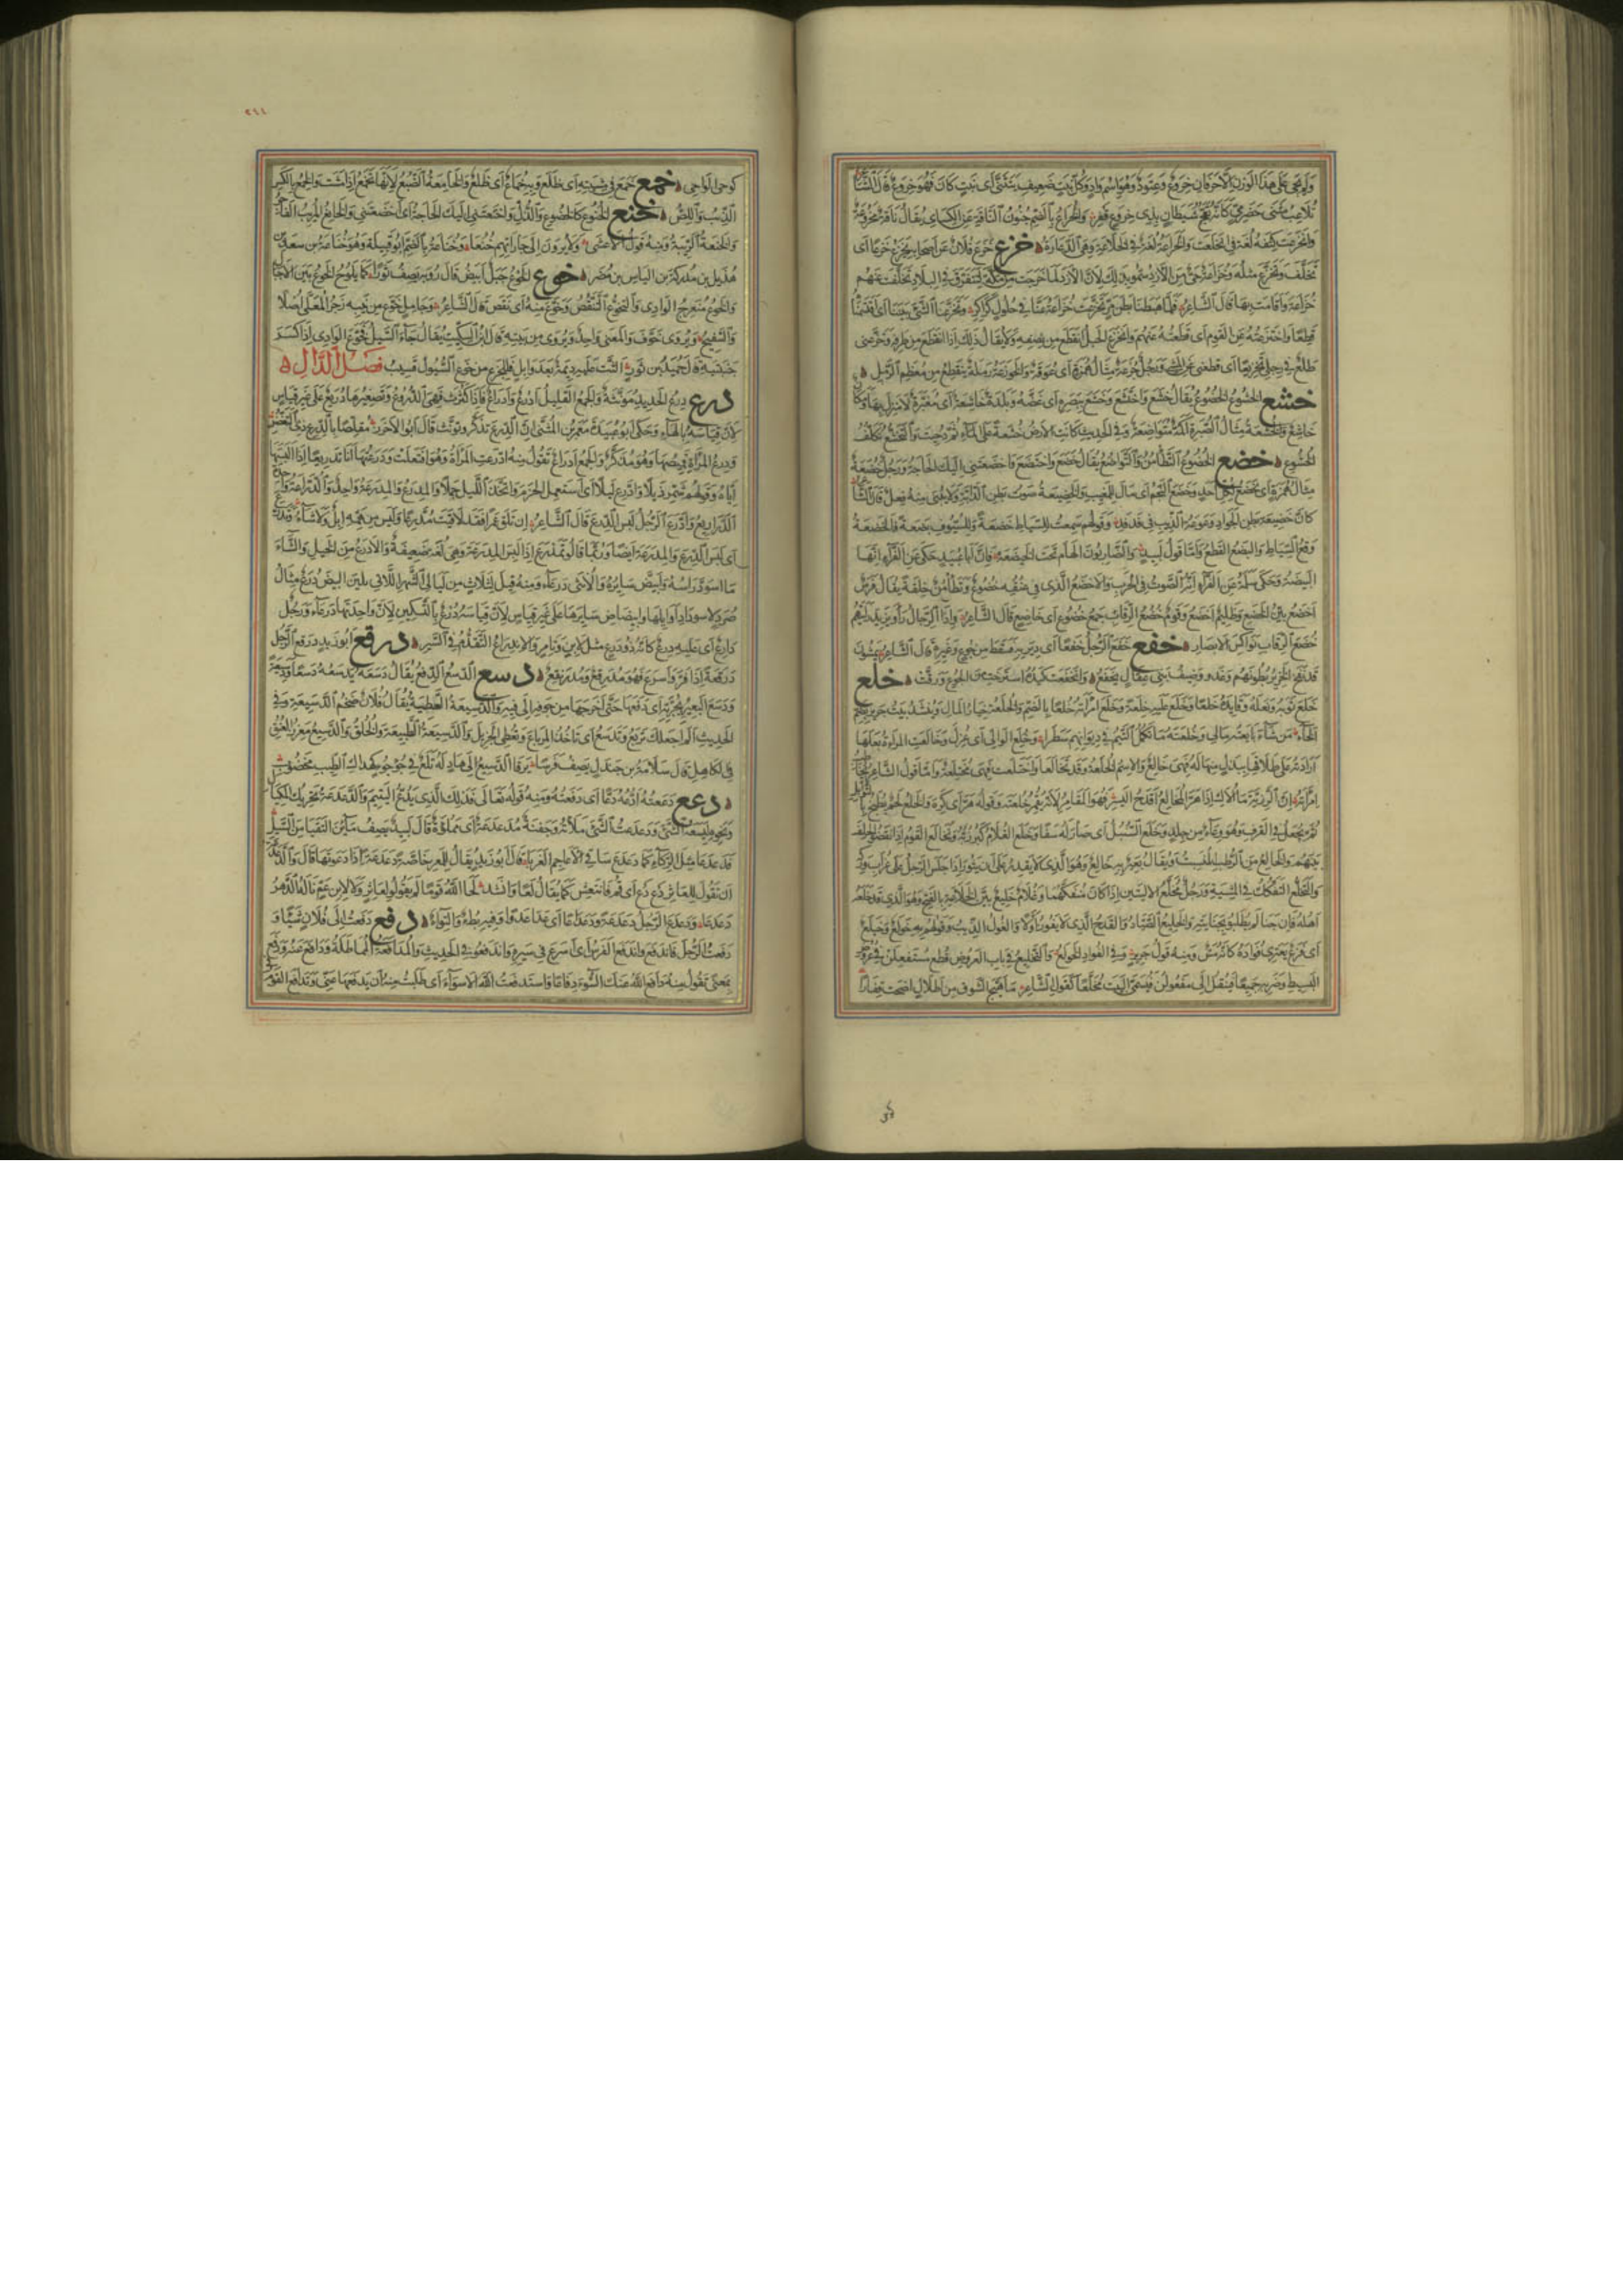 ولم يجئ على هذا الوزن إلا حرفان خروع وعتود وهو اسم واد وكل نبت ضعيف يتثنى أى نبت كان فهو خروع قال الشاعر
تلاعب مثنى حضرمى كأنه تعمج شيطان بذى خروع قفر والخراع بالضم جنون الناقة عن الكسائى يقال ناقة مخروعة
وانخرعت كتفه لغة فى انخلعت والخراعة لغة فى الخلاعة وهى الدعارة خزع خزع فلان عن أصحابه يخزع خزعا أى
تخلف وتخزع مثله وخزاعة حى من الأزد سموا بذلك لأن الأزد لما خرجت من مكة لتتفرق فى البلاد تخلفت عنهم
خزاعة وأقامت بها قال الشاعر فلما هبطنا بطن مر تخزعت خزاعة عنا فى حلول كراكر وتخزعنا الشئ بيننا أى اقتسمناه
قطعا واختزعته عن القوم أى قطعته عنهم وانخزع الحبل انقطع من نصفه ولا يقال ذلك إذا انقطع من طرفه وخزعنى
ظلع فى رجلى تخزيعا أى قطعنى عن المشى ورجل خزعة مثال همزة أى عوقة والخوزعة رملة تنقطع من معظم الرمل
خشع الخشوع الخضوع يقال خشع واختشع وخشع ببصره أى غضه وبلدة خاشعة أى مغبرة لا منزل بها ومكان
خاشع والخشعة مثال الصبرة أكمة متواضعة وفى الحديث كانت الأرض خشعة على الماء ثم دحيت والتخشع تكلف
الخشوع خضع الخضوع التطامن والتواضع يقال خضع واختضع وأخضعتنى إليك الحاجة ورجل خضعة
مثال همزة أى يخضع لكل أحد وخضع النجم أى مال للمغيب والخضيعة صوت بطن الدابة ولا يبنى منه فعل قال الشاعر
كأن خضيعة بطن الجواد وعوعة الذئب فى فدفد وقولهم سمعت للسياط خضعة وللسيوف بضعة فالخضعة
وقع السياط والبضع القطع وأما قول لبيد والضاربون الهام تحت الخيضعة فإن أبا عبيد حكى عن الفراء أنها
البيضة وحكى سلمة عن الفراء أنه الصوت فى الحرب والأخضع الذى فى عنقه خضوع وتطامن خلقة يقال فرس
أخضع بين الخضع وظليم أخضع وقوم خضع الرقاب جمع خضوع أى خاضع قال الشاعر وإذا الرجال رأوا يزيد رأيتهم
خضع الرقاب نواكس الأبصار خفع خفع الرجل خفعا أى دير به فسقط من جوع وغيره قال الشاعر يمشون
قد نفخ الخزير بطونهم وغدوا وضيف بنى عقال يخفع وانخفعت كبده استرخت من الجوع ورقت خلع
خلع ثوبه ونعله وقائده خلعا وخلع عليه خلعة وخلع امرأته خلعا بالضم والخلعة خيار المال وينشد بيت جرير بضم
الخاء من شاء بايعته مالى وخلعته ما تكمل التيم فى ديوانهم سطرا وخلع الوالى أى عزل وخالعت المرأة بعلها
أرادته على طلاقها ببذل منها له فهى خالع والاسم الخلعة وقد تخالعا واختلعت فهى مختلعة وأما قول الشاعر
إن الرزية ما ألاك إذا هر المخالع أقدح اليسر فهو المقامر لأنه يقمر خلعته وقوله هر أى كره والخلع لحم يطبخ بالتوابل
ثم يجعل فى القرف وهو وعاء من جلد وخلع السنبل أى صار له سفا وخلع الغلام كبر زبه وتخالع القوم إذا نقضوا الحلف
بينهم والخالع من الرطب المنسبت ويقال بعير به خالع وهو الذى لا يقدر على أن يثور إذا جلس الرجل على غراب وركه
والتخلع التفكك فى المشية ورجل مخلع الأليتين إذا كان منفكهما وغلام خليع بين الخلاعة بالفتح وهو الذى قد خلعه
أهله فإن جنا لم يطلبوا بجنايته والخليع الصياد والقدح الذى لا يفوز أولا والغول الذئب وقولهم به خولع وخيلع
أى فزع يعترى فؤاده كأنه مس ومنه قول جرير وفى الفؤاد الخولع والتخليع فى باب العروض قطع مستفعلن فى عروض
البسيط وضربه جميعا فينقل إلى مفعولن فيسمى البيت مخلعا كقول الشاعر ما هيج الشوق من أطلال أضحت قفارا
كوحى
٢٦١
كوحى الواحى خمع خمع فى مشيته أى ظلع وبه خماع أى ظلع والخامعة الضبع لأنها تخمع إذا مشت والخمع بالكسر
الذئب واللص خنع الخنوع كالخضوع والذل وأخنعتنى إليك الحاجة أى أخضعتنى والخانع المريب الفاجر
والخنعة الريبة ومنه قول الأعشى ولا يرون إلى جاراتهم خنعا وخناعة بالضم أبو قبيلة وهو خناعة بن سعد بن
هذيل بن مدركة بن الياس بن مضر خوع الخوع جبل أبيض قال رؤبة يصف ثورا كما يلوح الخوع بين الأجبال
والخوع منعرج الوادى والتخوع التنقص وخوع منه أى نقص قال الشاعر وجامل خوع من نيبه زجر المعلى أصلا
والسفيح ويروى خوف والمعنى واحد ويروى من نبته قال ابن السكيت يقال جاء السيل فخوع الوادى إذا كسر
جنبتيه قال حميد بن ثور ألثت عليه ديمة بعد وابل فللجزع من خوع السيول قسيب فصل الدال
درع درع الحديد مؤنثة والجمع القليل أدرع وأدراع فإذا كثرت فهى الدروع وتصغيرها دريع على غير قياس
لأن قياسه بالهاء وحكى أبو عبيدة معمر بن المثنى أن الدرع تذكر وتؤنث قال أبو الأخزر مقلصا بالدرع ذى التغضن
ودرع المرأة قميصها وهو مذكر والجمع أدراع تقول منه ادرعت المرأة وهو افتعلت ودرعتها أنا تدريعا إذا ألبستها
إياه وقولهم شمر ذيلا وادرع ليلا أى استعمل الحزم واتخذ الليل جملا والمدرع والمدرعة واحد والدراعة واحدة
الدراريع وادرع الرجل لبس الدرع قال الشاعر إن تلق عمرا فقد لاقيت مدرعا وليس من همه إبل ولا شاء
أى لبس الدرع والمدرعة أيضا وربما قالوا تمدرع إذا لبس المدرعة وهى لغة ضعيفة والأدرع من الخيل والشاء
ما اسود رأسه وابيض سايره والأنثى درعاء ومنه قيل لثلاث من ليالى الشهر اللاتى يلين البيض درع مثال
صرد لاسوداد أوايلها وابيضاض سايرها على غير قياس لأن قياسه درع بالتسكين لأن واحدتها درعاء ورجل
دارع أى عليه درع كأنه ذو درع مثل لابن وتامر والاندراع التقدم فى السير درقع أبو زيد درقع الرجل
درقعة إذا فر وأسرع فهو مدرقع ومدرنقع دسع الدسع الدفع يقال دسعه يدسعه دسعا ودسيعة
ودسع البعير بجرته أى دفعها حتى أخرجها من جوفه إلى فيه والدسيعة العطية يقال فلان ضخم الدسيعة وفى
الحديث ألم أجعلك تربع وتدسع أى تأخذ المرباع وتعطى الجزيل والدسيعة الطبيعة والخلق والدسيع مغرز العنق
فى الكاهل قال سلامة بن جندل يصف فرسا يرقى الدسيع إلى هاد له تلع فى جؤجؤ كمداك الطيب مخضوب
دعع دععته أدعه دعا أى دفعته ومنه قوله تعالى فذلك الذى يدع اليتيم والدعدعة تحريك المكيال
ونحوه ليسعه الشئ ودعدعت الشئ ملأته وجفنة مدعدعة أى مملوءة قال لبيد يصف ماءين التقيا من السيل
فدعدعا سرة الركاء كما دعدع ساقى الأعاجم الغربا قال أبو زيد يقال للمعز خاصة دعدعت إذا دعوتها قال والدعدعة
أن تقول للعاثر دع دع أى قم فانتعش كما يقال لعا وأنشد لحا الله قوما لم يقولوا لعاثر ولا لابن عم ناله الدهر
دعدعا ودعدع الرجل دعدعة ودعداعا أى عدا عدوا وفيه بطء والتواء دفع دفعت إلى فلان شيئا و
دفعت الرجل فاندفع واندفع الفرس أى أسرع فى سيره واندفعوا فى الحديث والمدافعة المماطلة ودافع عنه ودفع
بمعنى تقول منه دافع الله عنك السوء دفاعا واستدفعت الله الأسواء أى طلبت منه أن يدفعها عنى وتدافع القوم